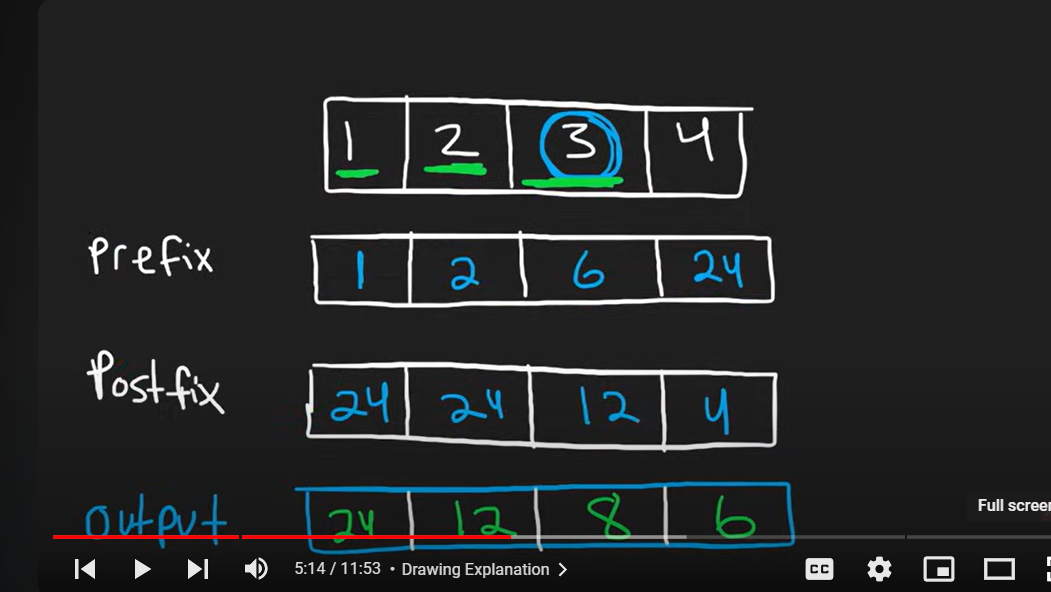 1 2 3 4
Prefix 1 2 6 24
Postfix 24 24 12 4
Output 24 12 8 6
Full screen
5:14 / 11:53 • Drawing Explanation >
CC